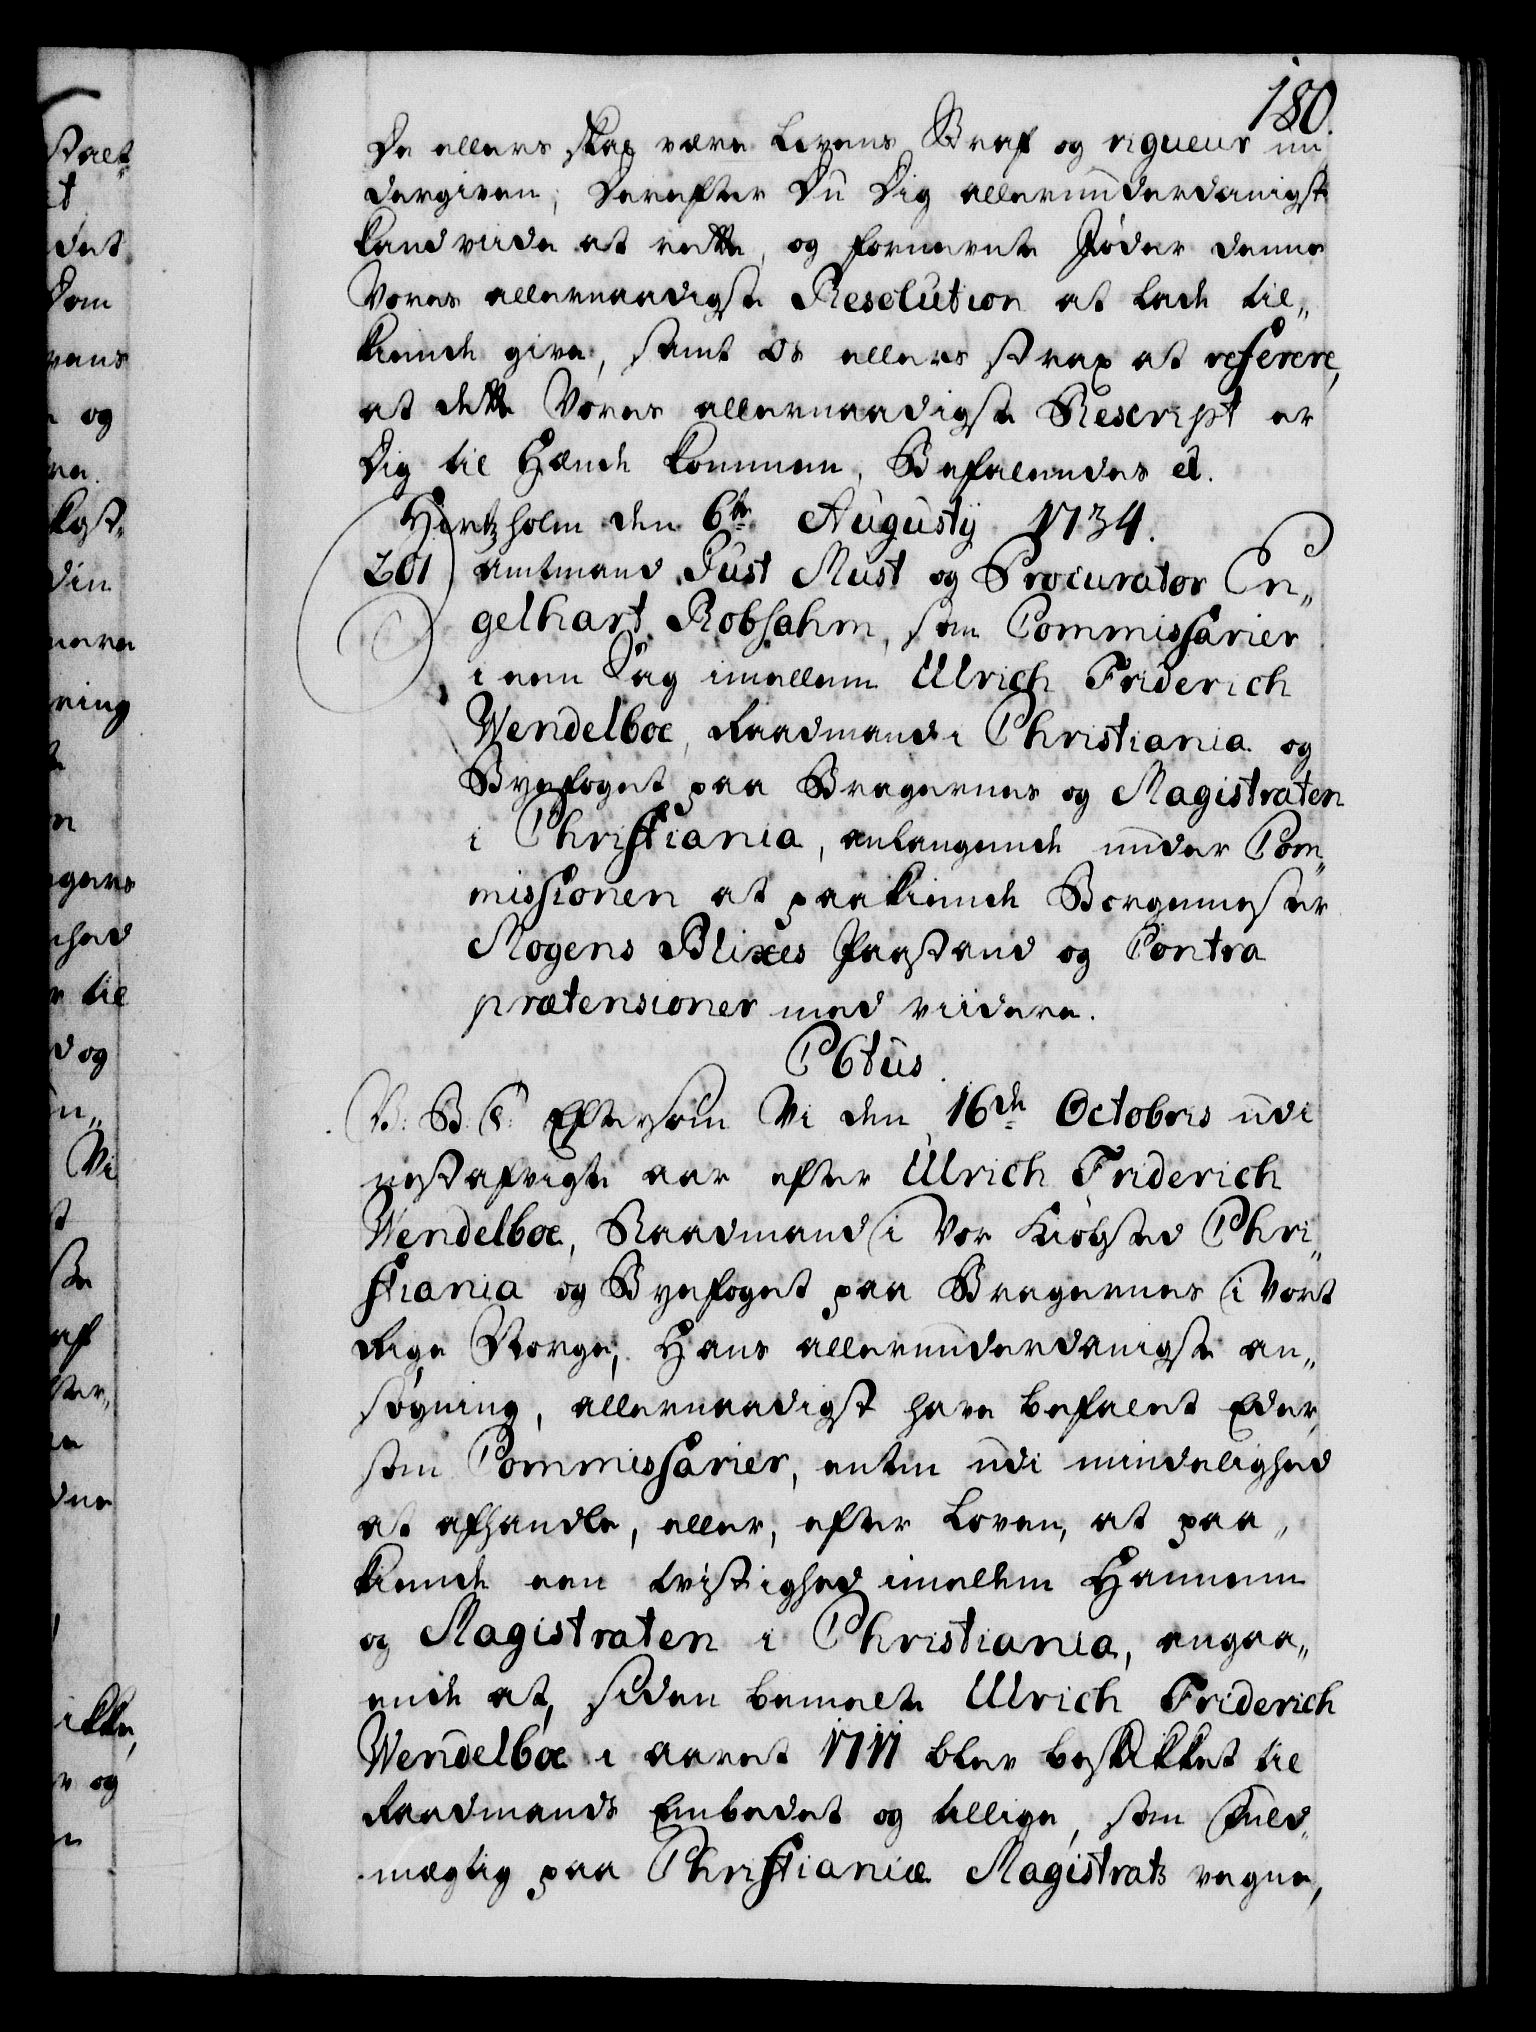 180.
De ellers skal være Lovens Straf og rigueur un
dergiven; Derefter Du Dig allerunderdanigst
kand viide at rette, og fornevnte Jøder denne
Vores allernaadigste Resolution at lade til„
kiende give, samt os ellers strax at referere,
at dette Vores allernaadigste Rescript er
Dig til Hænde kommen, Befalendes et.
Hirtzholm den 6te Augustij 1734.
201 Amtmand Just Must og Procurator En„
gelhart Robsahm, som Commissarier
i een Sag imellem Ulrich Friderich
Wendelboe, Raadmand i Christiania og
Byefoget paa Bragernes og Magistraten
i Christiania, anlangende under Com„
missionen at paakiende Borgemester
Mogens Blixes Paastand og Contra
prætensioner med viidere.
C6tus.
V: B: G: Eftersom Vi den 16de Octobris udi
nestafvigte aar efter Ulrich Friderich
Wendelboe, Raadmand i Vor Kiøbsted Chri„
stiania og Byefoget paa Bragernes i Vort
Rige Norge, Hans allerunderdanigste an„
søgning, allernaadigst have befalet Eder,
som Commissarier, enten udi mindelighed
at afhandle, eller, efter Loven, at paa„
kiende een tvistighed imellem Hannem
og Magistraten i Christiania, angaa„
ende at, siden bemelte Ulrich Friderich
Wendelboe i aaret 1711 blev beskikket til
Raadmands Embedet og tillige, som Fuld„
mægtig paa Christianiæ Magistrats vegne,